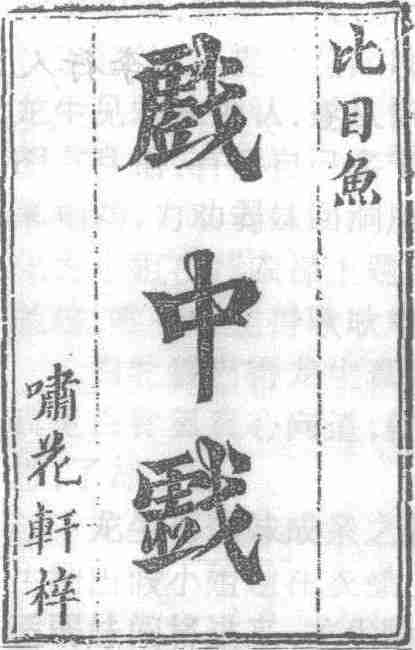 比目魚
戲中戲
嘯花軒梓